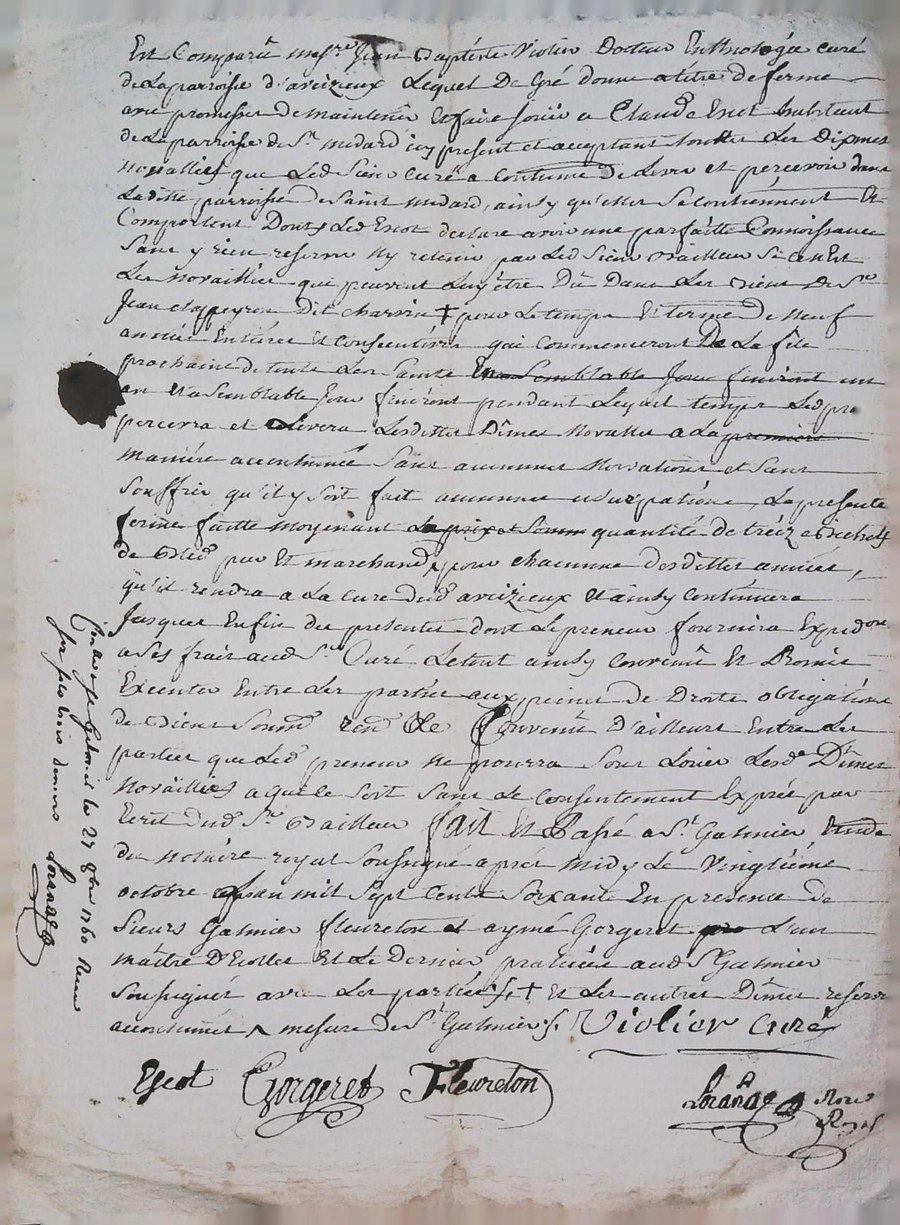 Est Comparû mes.re Jean Baptiste Violier Docteur En theologie curé
de La parroisse d'aveizieux Lequel De Gré donne a titre de ferme
avec promesse de maintenir Et faire joüir a Claude Escot habitant
de La parroisse de S.t medard icy present et acceptant touttes Les Dixmes
Novalles que Led Sieur Curé a Coutume de Lever et percevoir dans
Laditte parroisse de Saint medard, ainsy qu'elles Se contiennent Et
Comportent Dont Led Escot declare avoir une parfaitte Connoissance
Sans y rien reserver Ny retenir par Led Sieur Bailleur Si ce n'Est
Les Novailles qui peuvent Luy être Dû Dans Les biens De S.r
Jean Clappeyron Dit charvin + pour Le temps Et terme de Neuf
années Entieres Et Consecutives qui Commenceront De La fête
prochaine de toute Les Saints En Semblable Jour finiront
an Et a Semblable Jour finiront pendant Lequel temps Led pre
percevra et Levera Lesdittes Dîmes Novalles a La premiere
maniére accoutumée Sans aucunnes Novations et Sans
Souffrir qu'il y Soit fait aucunnes usurpations, La presente
ferme faitte moyenant Le prix et Somme quantité de treize Bichets
de Bled pur Et marchand, pour chacunne desdittes années,
qu'il rendra a La cure dud aveizieux Et ainsy Continuera
Jusques Enfin des presentes dont Le preneur fournira Expedon
a Ses frais aud S.r Curé Le tout ainsy Convenû Et Promis
Executer Entre Les parties aux peines de Droits obligations
de Biens Soumd Rend Et Convenû D'ailleurs Entre Les
parties que Led preneur Ne pourra Sous Louer Lesd. Dîmes
Novailles a qui ce Soit Sans Le Consentement Exprés par
Ecrit dud S.r Bailleur fait Et Passé a S.t Galmier Etude
du Notaire royal Soussigné aprés midy Le Vingtiéme
octobre mil Sept Cents Soixante En presence de
Sieurs Galmier fleureton et aymé Gorgeret L'un
maître D'Ecolle Et Le Dernier praticien aud S.t Galmier
Soussignés avec Les parties /. + Et Les autres Dîmes reservé
accoutumés ^ mesure de S.t Galmier /. Violier curé
Escot Gorgeret Fleureton
Not.re
Royal
a S.t Galmier Le 27 8bre 1760 Reçu